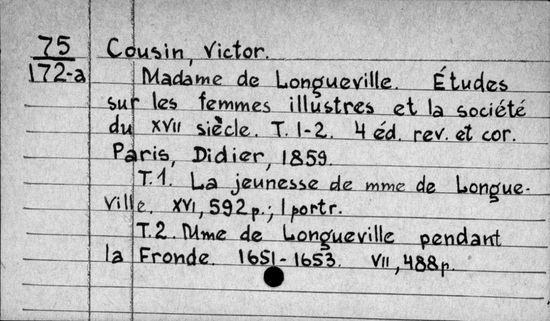 75 Cousin, Victor.
172-a Madame de Longueville. Études
sur les femmes illustres et la société
du XVII siècle. T. 1-2. 4 éd. rev. et cor.
Paris, Didier, 1859.
T.1. La jeunesse de mme de Longue-
ville. XVI, 592 p.; 1 portr.
T.2. Mme de Longueville pendant
la Fronde. 1651-1653. VII, 488 p.